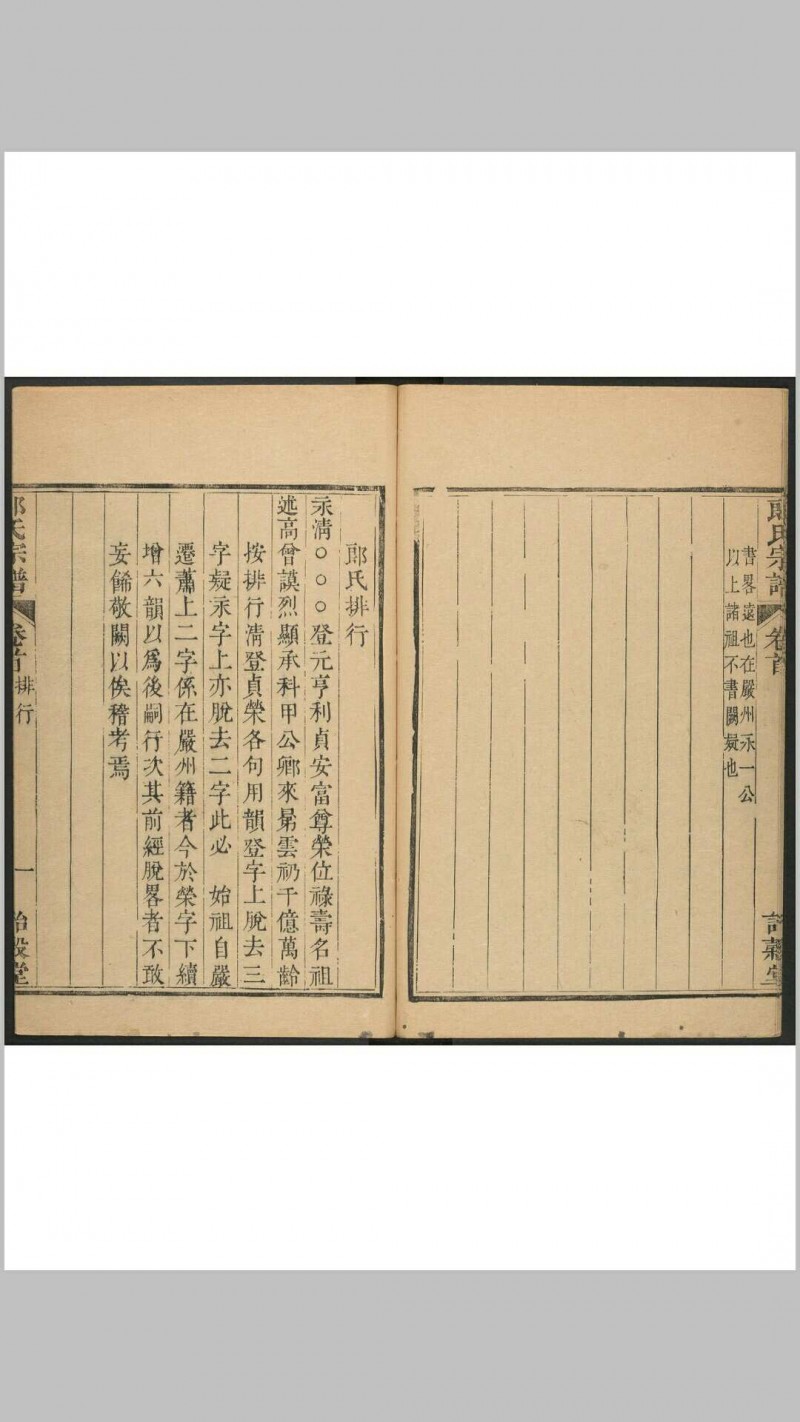 郎氏宗譜
卷首
詒穀堂
書畧遠也在嚴州永一公
以上諸祖不書闕疑也
郎氏排行
永淸○○○登元亨利貞安富尊榮位祿壽名祖
述高曾謨烈顯承科甲公卿來晜雲礽千億萬齡
按排行淸登貞榮各句用韻登字上脫去三
字疑永字上亦脫去二字此必 始祖自嚴
遷蕭上二字係在嚴州籍者今於榮字下續
增六韻以爲後嗣行次其前經脫畧者不敢
妄餙敬闕以俟稽考焉
郎氏宗譜
卷首
排行
一
詒穀堂